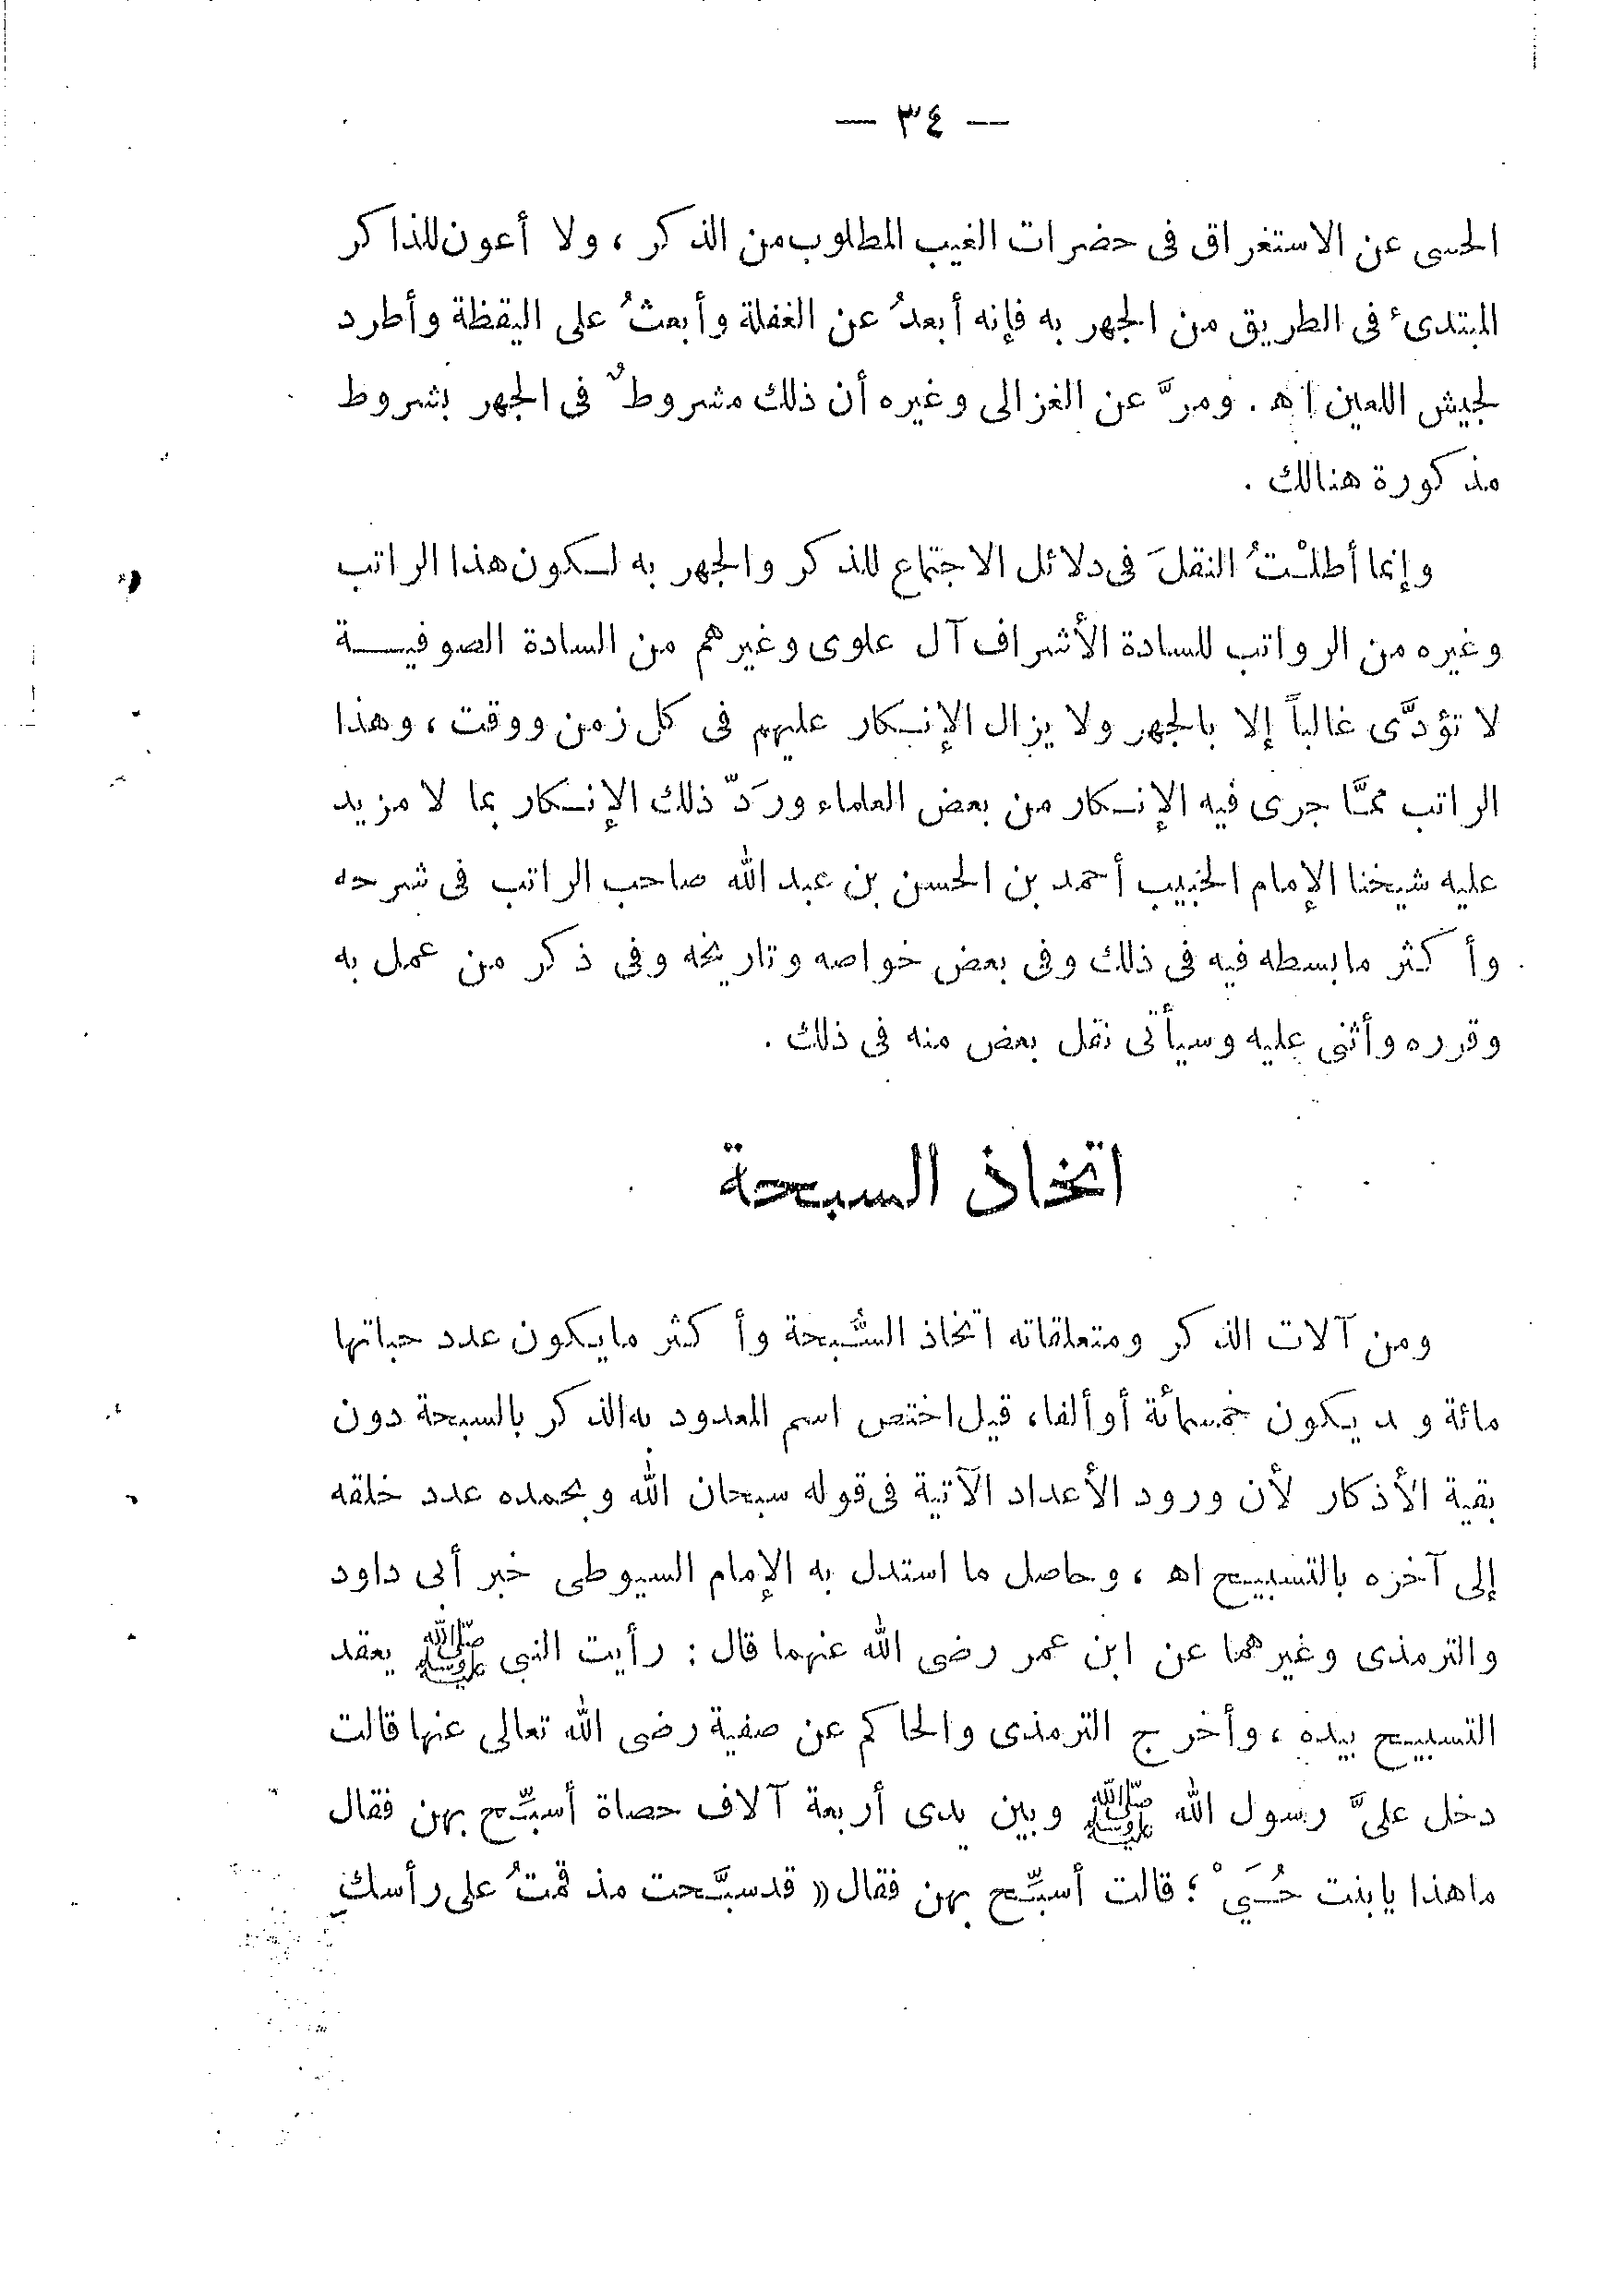 — ٣٤ —
الحسى عن الاستغراق فى حضرات الغيب المطلوب من الذكر ، ولا أعون للذاكر
المبتدىء فى الطريق من الجهر به فإنه أبعدُ عن الغفلة وأبعثُ على اليقظة وأطرد
لجيش اللعين اه . ومرَّ عن الغزالى وغيره أن ذلك مشروطٌ فى الجهر بشروط
مذكورة هنالك .
وإنما أطلْتُ النقلَ فى دلائل الاجتماع للذكر والجهر به لكون هذا الراتب
وغيره من الرواتب للسادة الأشراف آل علوى وغيرهم من السادة الصوفيـــة
لا تؤدَّى غالباً إلا بالجهر ولا يزال الإنكار عليهم فى كل زمن ووقت ، وهذا
الراتب ممَّا جرى فيه الإنكار من بعض العلماء وردَّ ذلك الإنكار بما لا مزيد
عليه شيخنا الإمام الحبيب أحمد بن الحسن بن عبد الله صاحب الراتب فى شرحه
وأكثر ما بسطه فيه فى ذلك وفى بعض خواصه وتاريخه وفى ذكر من عمل به
وقرره وأثنى عليه وسيأتى نقل بعض منه فى ذلك .
اتخاذ السبحة
ومن آلات الذكر ومتعلقاته اتخاذ السُّبحة وأكثر ما يكون عدد حباتها
مائة و د يكون خمسمائة أو ألفا، قيل اختص اسم المعدود به الذكر بالسبحة دون
بقية الأذكار لأن ورود الأعداد الآتية فى قوله سبحان الله وبحمده عدد خلقه
إلى آخره بالتسبيح اه ، وحاصل ما استدل به الإمام السيوطى خبر أبى داود
والترمذى وغيرهما عن ابن عمر رضى الله عنهما قال : رأيت النبى ﷺ يعقد
التسبيح بيده ، وأخرج الترمذى والحاكم عن صفية رضى الله تعالى عنها قالت
دخل علىَّ رسول الله ﷺ وبين يدى أربعة آلاف حصاة أسبِّح بهن فقال
ما هذا يا بنت حُيَيْ ؛ قالت أسبِّح بهن فقال « قد سبَّحت مذ قمتُ على رأسكِ